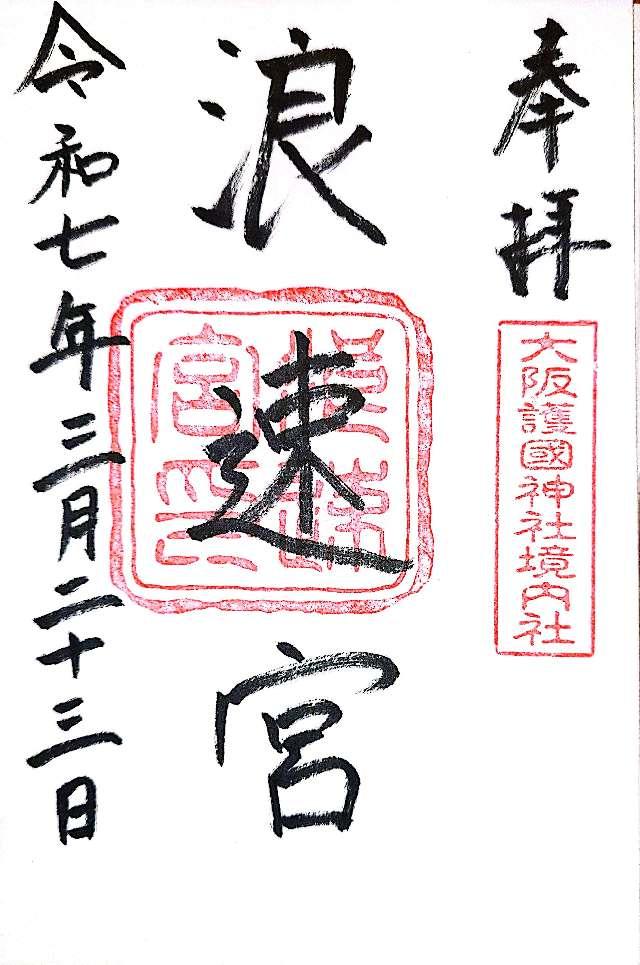 奉拝
大阪護國神社境内社
浪速宮
令和七年三月二十三日